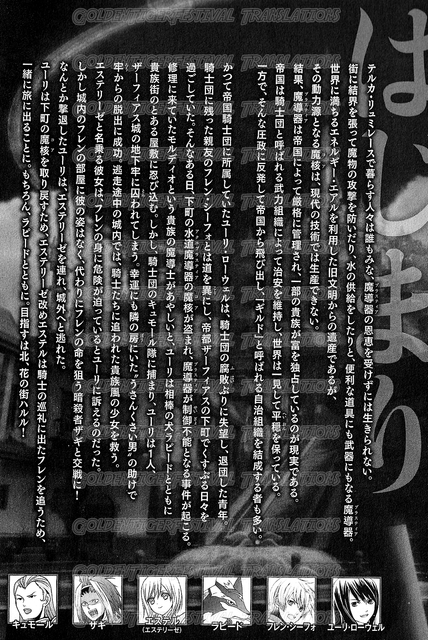 GOLDEN FESTIVAL TRANSLATIONS
はじまり
テルカ・リュミレースで暮らす人々は誰もみな、魔導器の恩恵を受けずには生きられない。
街に結界を張って魔物の攻撃を防いだり、水の供給をしたりと、便利な道具にも武器にもなる魔導器。
世界に満ちるエネルギー・エアルを利用した旧文明からの遺産であるが、
その動力源となる魔核は、現代の技術では生産できない。
結果、魔導器は帝国によって厳格に管理され、一部の貴族が富を独占しているのが現実である。
帝国は騎士団と呼ばれる武力組織によって治安を維持し、世界は一見して平穏を保っている。
一方で、そんな圧政に反発して帝国から飛び出し、「ギルド」と呼ばれる自治組織を結成する者も多い。
かつて帝国騎士団に所属していたユーリ・ローウェルは、騎士団の腐敗ぶりに失望し、退団した青年。
騎士団に残った親友のフレン・シーフォとは道を異にし、帝都ザーフィアスの下町でくすぶる日々を
過ごしていた。そんなある日、下町の水道魔導器の魔核が盗まれ、魔導器が制御不能となる事件が起こる。
修理に来ていたモルディオという貴族の魔導士があやしいと、ユーリは相棒の犬ラピードとともに
貴族街のとある屋敷に忍び込む。しかし、騎士団のキュモール隊に捕まり、ユーリは一人、
ザーフィアス城の地下牢に囚われてしまう。幸運にも隣の房にいた“うさんくさい男”の助けで
牢からの脱出に成功。逃走途中の城内では、騎士たちに追われた貴族風の少女を救う。
エステリーゼと名乗る彼女は、フレンの身に危険が迫っているとユーリに訴えるのだった。
しかし城内のフレンの部屋に彼の姿はなく、代わりにフレンの命を狙う暗殺者ザギと交戦に!
なんとか撃退したユーリは、エステリーゼを連れ、城外へと逃れた。
ユーリは下町の魔核を取り戻すため、エステリーゼ改めエステルは騎士の巡礼に出たフレンを追うため、
一緒に旅に出ることに。もちろん、ラピードとともに。目指すは北、花の街ハルル!
ユーリ・ローウェル
フレン・シーフォ
ラピード
エステル
(エステリーゼ)
ザギ
キュモール